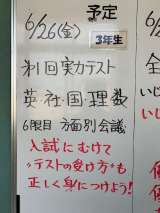 予定
6/26(金) 3年生
第1回実力テスト
英・社・国・理・数
6限目 方面別会議
入試にむけて
"テストの受け方"も
正しく身につけよう!
6/
全
いじ
い